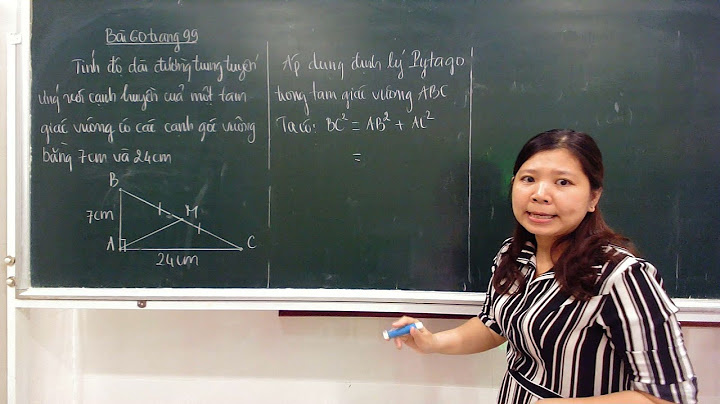 Bài 60 trang 99
Tính độ dài đường trung tuyến
ứng với cạnh huyền của một tam
giác vuông có các cạnh góc vuông
bằng 7cm và 24cm
B
7cm
M
A
C
24cm
Áp dụng định lý Pytago
trong tam giác vuông ABC
Ta có: BC² = AB² + AC²
=